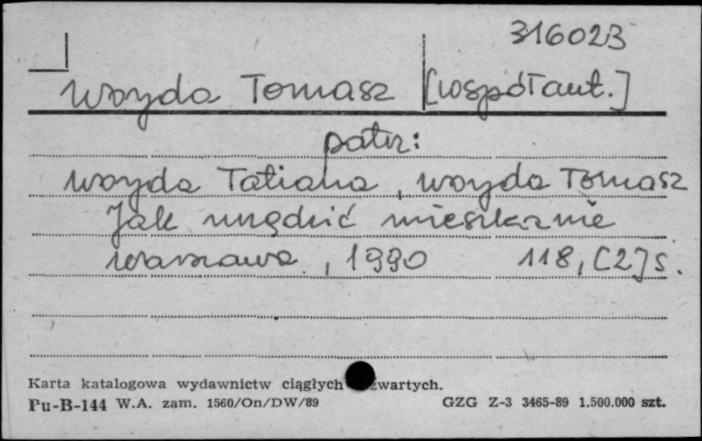 316023
Woyda Tomasz [współaut.]
patrz:
Woyda Tatiana, Woyda Tomasz
Jak urządzić mieszkanie
Warszawa, 1990 118, [2] s.
Karta katalogowa wydawnictw ciągłych zwartych.
Pu-B-144 W.A. zam. 1560/On/DW/89 GZG Z-3 3465-89 1.500.000 szt.